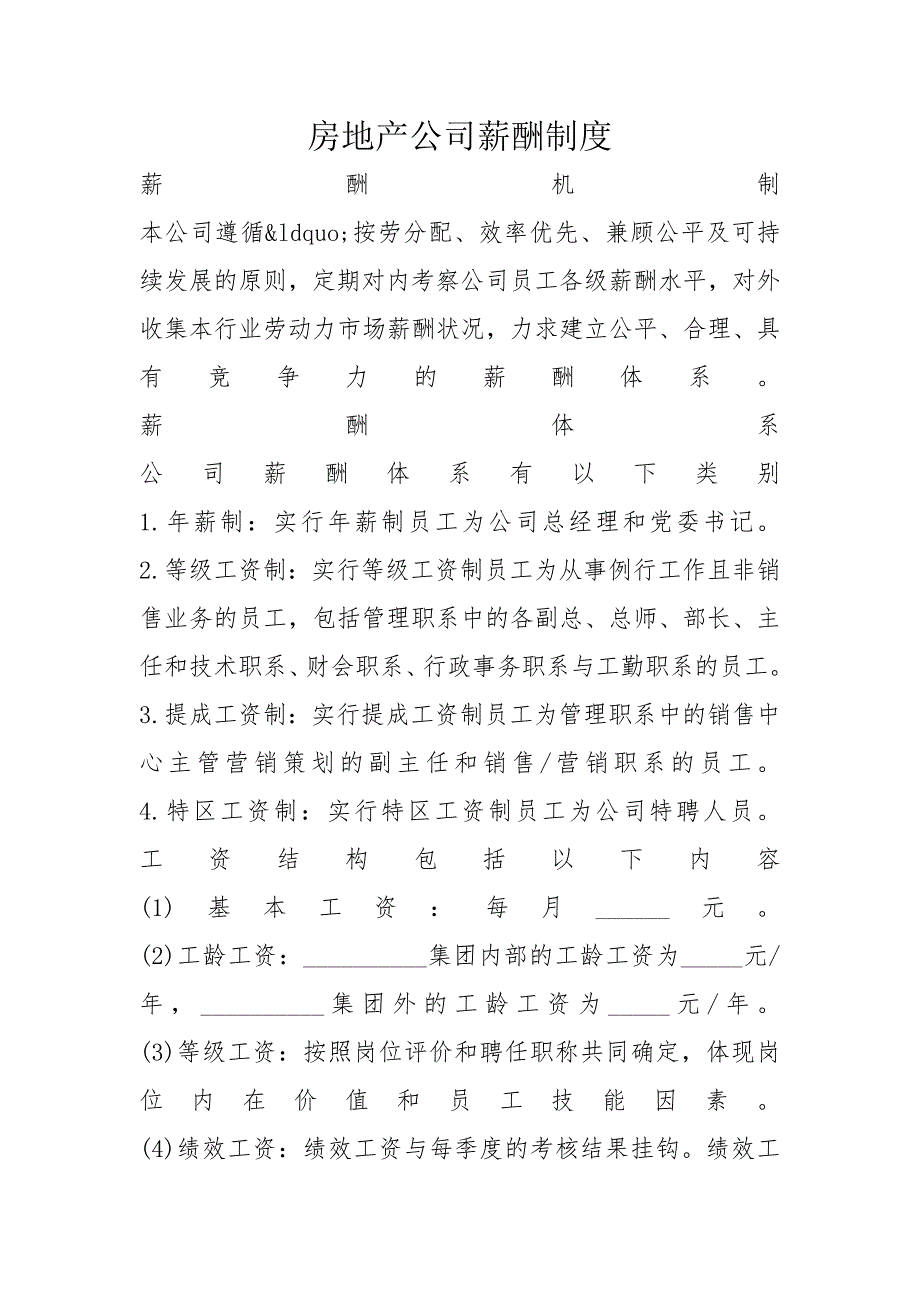 房地产公司薪酬制度
薪酬机制
本公司遵循&ldquo;按劳分配、效率优先、兼顾公平及可持
续发展的原则，定期对内考察公司员工各级薪酬水平，对外
收集本行业劳动力市场薪酬状况，力求建立公平、合理、具
有竞争力的薪酬体系。
薪酬体系
公司薪酬体系有以下类别
1.年薪制：实行年薪制员工为公司总经理和党委书记。
2.等级工资制：实行等级工资制员工为从事例行工作且非销
售业务的员工，包括管理职系中的各副总、总师、部长、主
任和技术职系、财会职系、行政事务职系与工勤职系的员工。
3.提成工资制：实行提成工资制员工为管理职系中的销售中
心主管营销策划的副主任和销售/营销职系的员工。
4.特区工资制：实行特区工资制员工为公司特聘人员。
工资结构包括以下内容
(1)基本工资：每月______元。
(2)工龄工资：__________集团内部的工龄工资为_____元/
年，__________集团外的工龄工资为_____元/年。
(3)等级工资：按照岗位评价和聘任职称共同确定，体现岗
位内在价值和员工技能因素。
(4)绩效工资：绩效工资与每季度的考核结果挂钩。绩效工